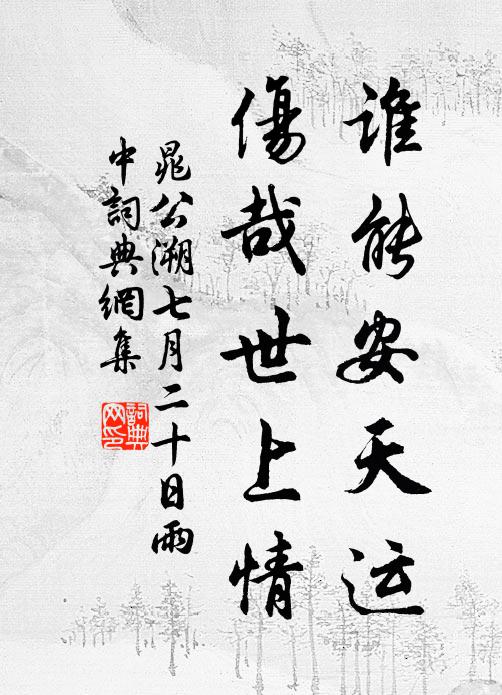 谁能安天运
傷哉世上情
晁公溯七月二十日雨
中詞典網集
詞典网印